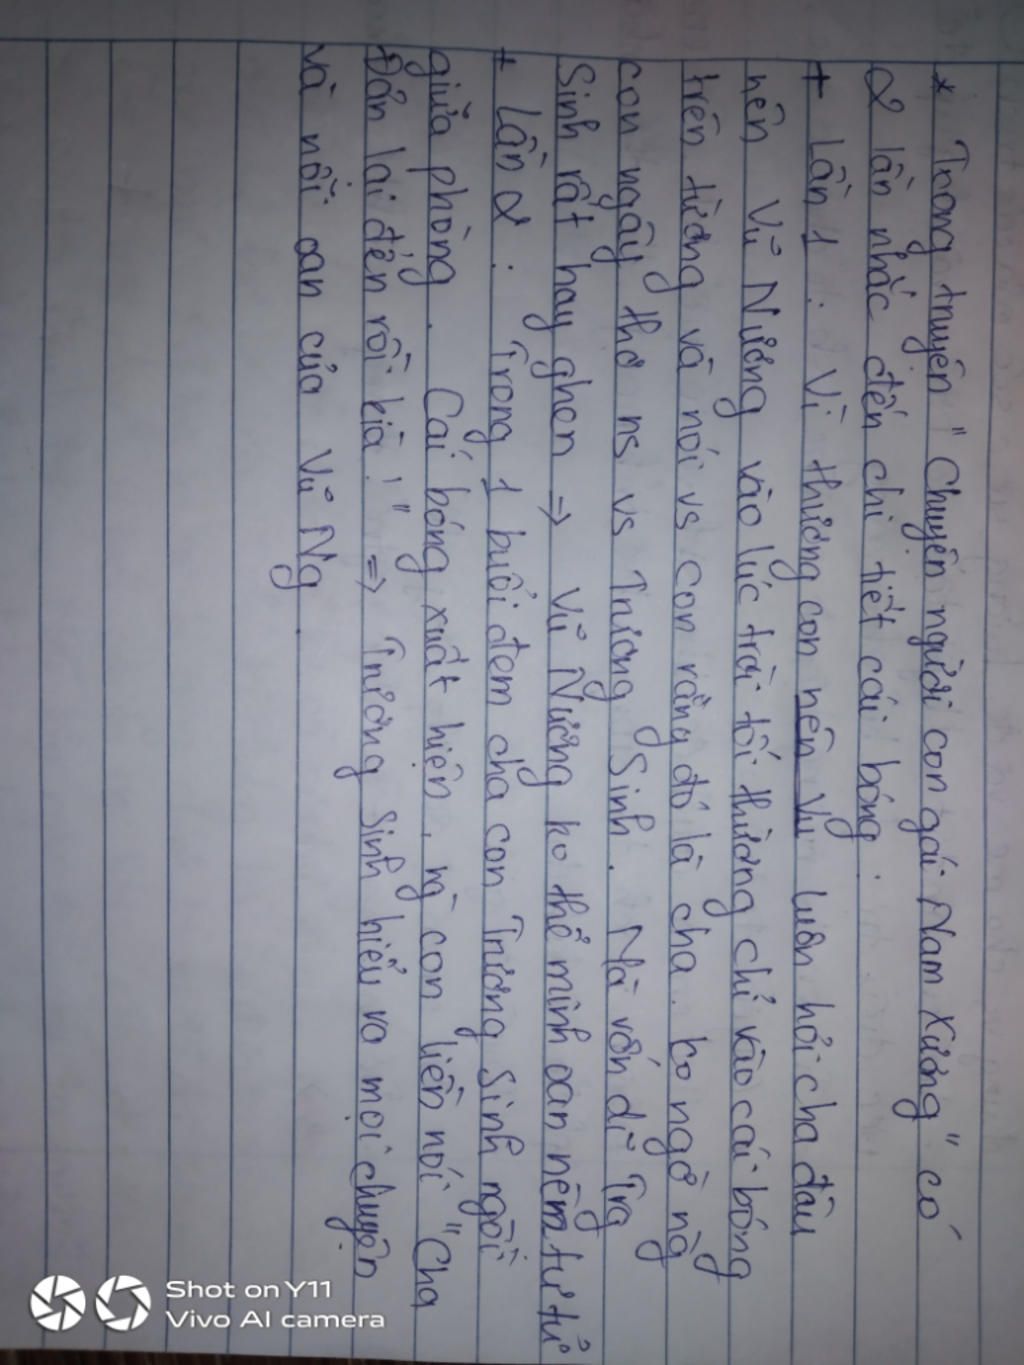 * Trong truyện "Chuyện người con gái Nam Xương" có
2 lần nhắc đến chi tiết cái bóng.
+ Lần 1: Vì thương con nên Vũ luôn hỏi cha đâu
nên Vũ Nương vào lúc trời tối thường chỉ vào cái bóng
trên tường và nói vs con rằng đó là cha. ko ngờ ng
con ngây thơ ns vs Trương Sinh. Mà vốn dĩ Trg
Sinh rất hay ghen => Vũ Nương ko thể minh oan nên tự tử
+ Lần 2: Trong 1 buổi đêm cha con Trương Sinh ngồi
giữa phòng. Cái bóng xuất hiện, ng con liền nói "Cha
Đản lại đến rồi kìa!" => Trương Sinh hiểu ra mọi chuyện
và nỗi oan của Vũ Ng.
Shot on Y11
Vivo AI camera